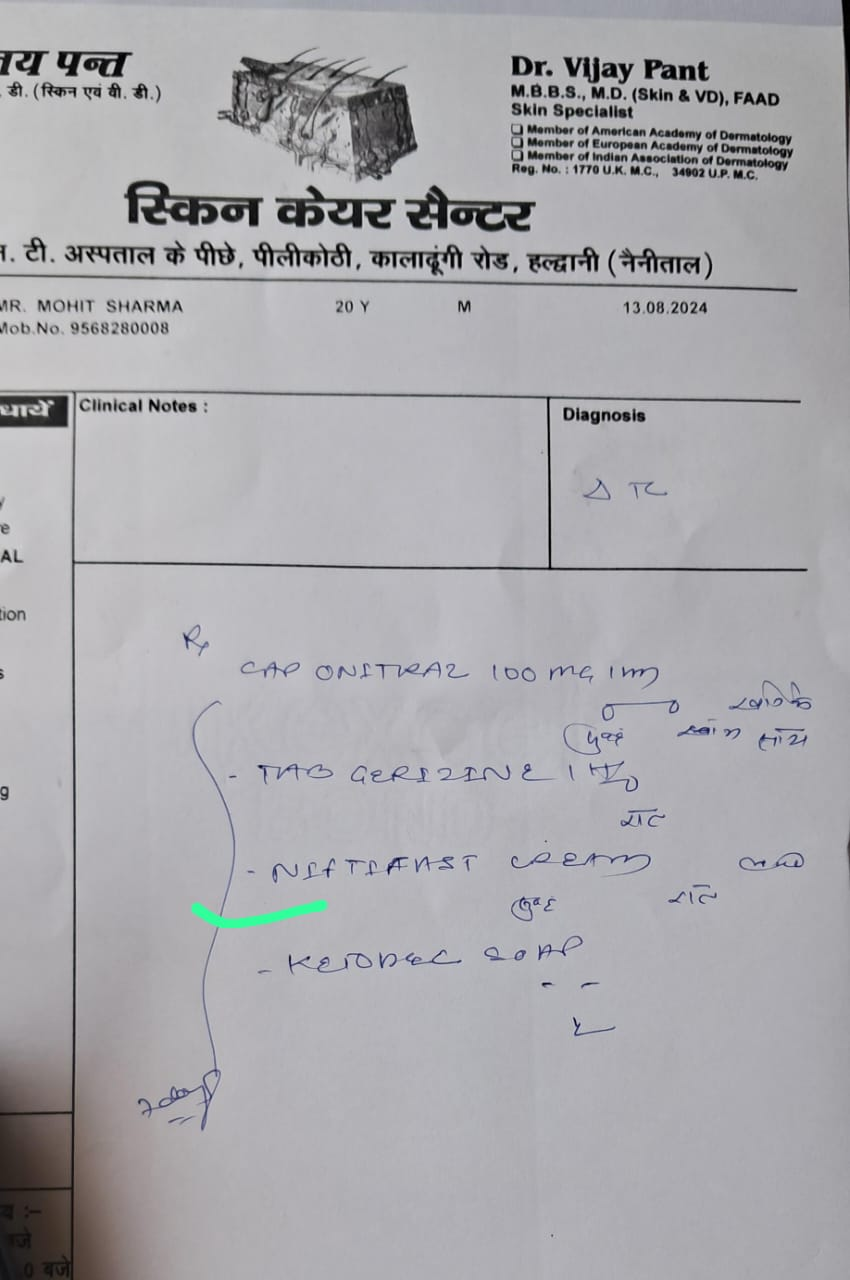 जय पन्त
. डी. (स्किन एवं वी. डी.)
Dr. Vijay Pant
M.B.B.S., M.D. (Skin & VD), FAAD
Skin Specialist
Member of American Academy of Dermatology
Member of European Academy of Dermatology
Member of Indian Association of Dermatology
Reg. No. : 1770 U.K. M.C., 34902 U.P. M.C.
स्किन केयर सैन्टर
. टी. अस्पताल के पीछे, पीलीकोठी, कालाढूंगी रोड, हल्द्वानी (नैनीताल)
MR. MOHIT SHARMA 20 Y M 13.08.2024
Mob.No. 9568280008
धायें
Clinical Notes :
Diagnosis
Δ TC
y
e
AL
tion
s
g
Rx
CAP ONITRAZ 100 mg
सुबह शाम
- TAB CERIZINE 1
रात
- CREAM
सुबह रात
- SOAP
7 days
य :-
बजे
0 बजे